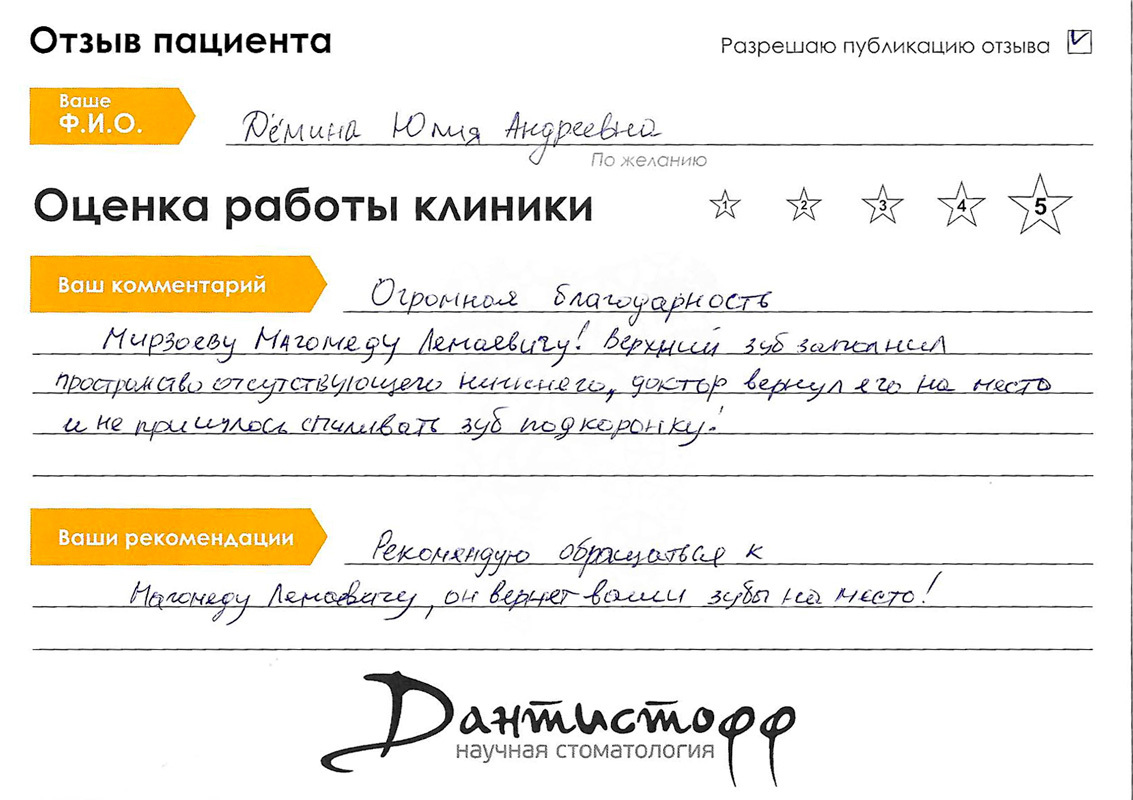 Отзыв пациента
Разрешаю публикацию отзыва
Ваше
Ф.И.О.
Дёмина Юлия Андреевна
По желанию
Оценка работы клиники
1 2 3 4 5
Ваш комментарий
Огромная благодарность
Мирзоеву Магомеду Лемаевичу! Верхний зуб заполнил
пространство отсутствующего нижнего, доктор вернул его на место
и не пришлось спиливать зуб под коронку!
Ваши рекомендации
Рекомендую обращаться к
Магомеду Лемаевичу, он вернет ваши зубы на место!
Дантистофф
научная стоматология